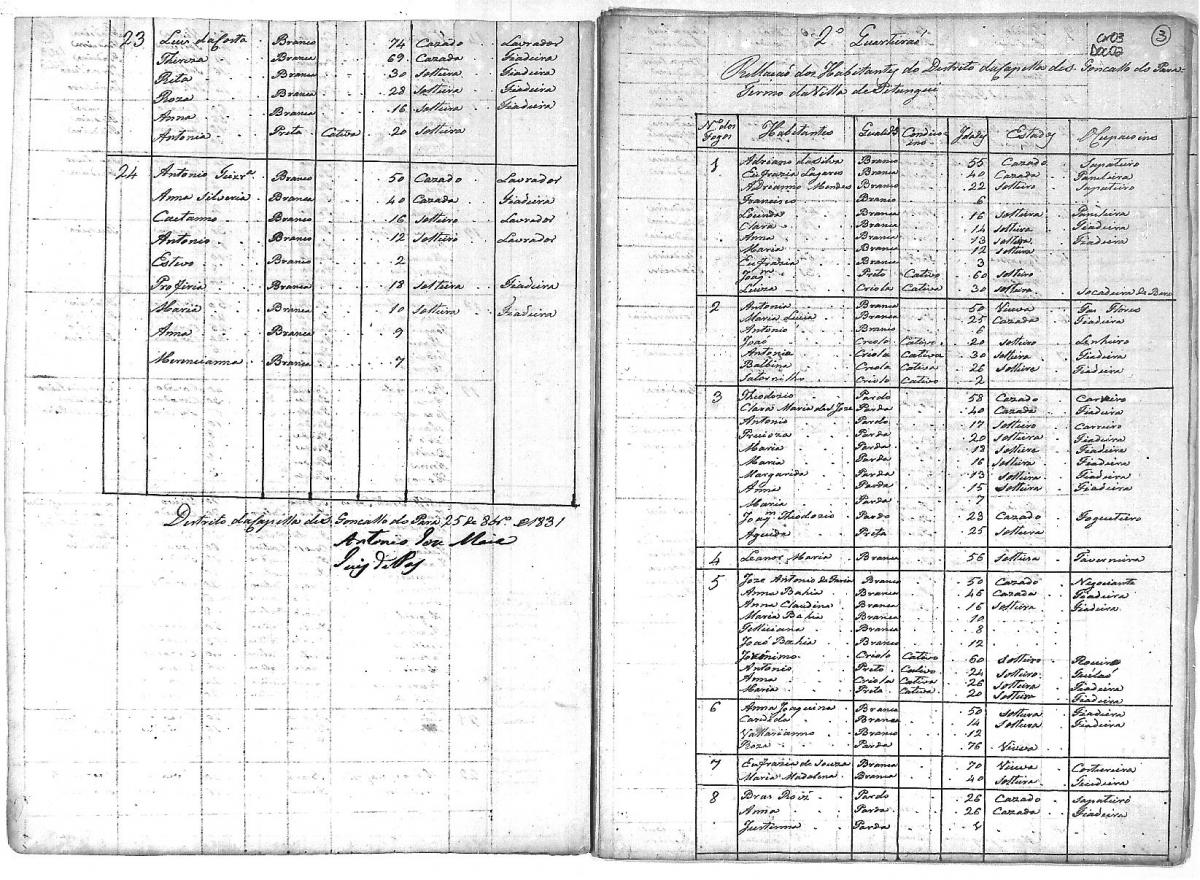 23 Luis da Costa Branco 74 Cazado Lavrador
Thereza Branca 69 Cazada Fiadeira
Rita Branca 30 Solteira Fiadeira
Roza Branca 28 Solteira Fiadeira
Anna Branca 16 Solteira Fiadeira
Antonia Preta Cativa 20 Solteira
24 Antonio Branco 50 Cazado Lavrador
Anna Silveria Branca 40 Cazada Fiadeira
Caetanno Branco 16 Solteiro Lavrador
Antonio Branco 12 Solteiro Lavrador
Estevo Branco 2
Profiria Branca 18 Solteira Fiadeira
Maria Branca 10 Solteira Fiadeira
Anna Branca 9
Merencianna Branca 7
Districto da Capella de S. Goncallo do Pará 25 de 8br.º de 1831
Antonio Joze
Juis de Paz
CX03
DOC07
3
2º Quarteiraõ
Rellacaõ dos Habitantes do Districto da Capella de S. Goncallo do Para
Termo da Villa de Pitangui
N.os dos Fogos Habitantes Qualide Condicoins Idades Estados Occupacoins
1 Adriano da Silva Branco 55 Cazado Sapateiro
Eufrazia Lagares Branca 40 Cazada Panileira
Adrianno Mendes Branco 22 Solteiro Sapateiro
Francisco Branco 6
Branca 16 Solteira Panileira
Clara Branca 14 Solteira Fiadeira
Anna Branca 13 Solteira Fiadeira
Maria Branca 12 Solteira
Eufrazia Branca 3
Joaq.m Preto Cativo 60 Solteiro
Luiza Criola Cativa 30 Solteira
2 Antonia Branca 50 Viuva Fas Flores
Maria Luiza Branca 25 Cazada Fiadeira
Antonio Branco 6
Joaõ Criolo Cativo 20 Solteiro Lenheiro
Antonia Criola Cativa 30 Solteira Fiadeira
Balbina Criola Cativa 26 Solteira Fiadeira
Satornilho Criolo Cativo 2
3 Theodozio Pardo 58 Cazado Carreiro
Clara Maria de S. Joze Parda 40 Cazada Fiadeira
Antonio Pardo 17 Solteiro Carreiro
Precioza Parda 20 Solteira Fiadeira
Maria Parda 18 Solteira Fiadeira
Maria Parda 16 Solteira Fiadeira
Margarida Parda 13 Solteira Fiadeira
Anna Parda 15 Solteira Fiadeira
Maria Parda 7
Joaq.m Theodozio Pardo 23 Cazado Fogueteiro
Agueda Preta 25 Solteira
4 Leanor Maria Branca 56 Solteira Taverneira
5 Joze Antonio de Faria Branco 50 Cazado Negociante
Anna Bahia Branca 46 Cazada Fiadeira
Anna Claudina Branca 16 Solteira Fiadeira
Maria Bahia Branca 10
Felliciana Branca 8
Joaõ Bahia Branco 12
Jeronimo Criolo Cativo 60 Solteiro Roceiro
Antonio Preto Cativo 24 Solteiro
Anna Criola Cativa 26 Solteira Fiadeira
Maria Preta Cativa 20 Solteira Fiadeira
6 Anna Joaquina Branca 50 Solteira Fiadeira
Candida Branca 14 Solteira Fiadeira
Vallerianno Branco 12
Roza Parda 76 Viuva
7 Eufrazia de Souza Branca 70 Viuva Costureira
Maria Madalena Branca 40 Solteira Fiadeira
8 Bras Roiz Pardo 26 Cazado Sapateiro
Anna Parda 26 Cazada Fiadeira
Justinna Parda